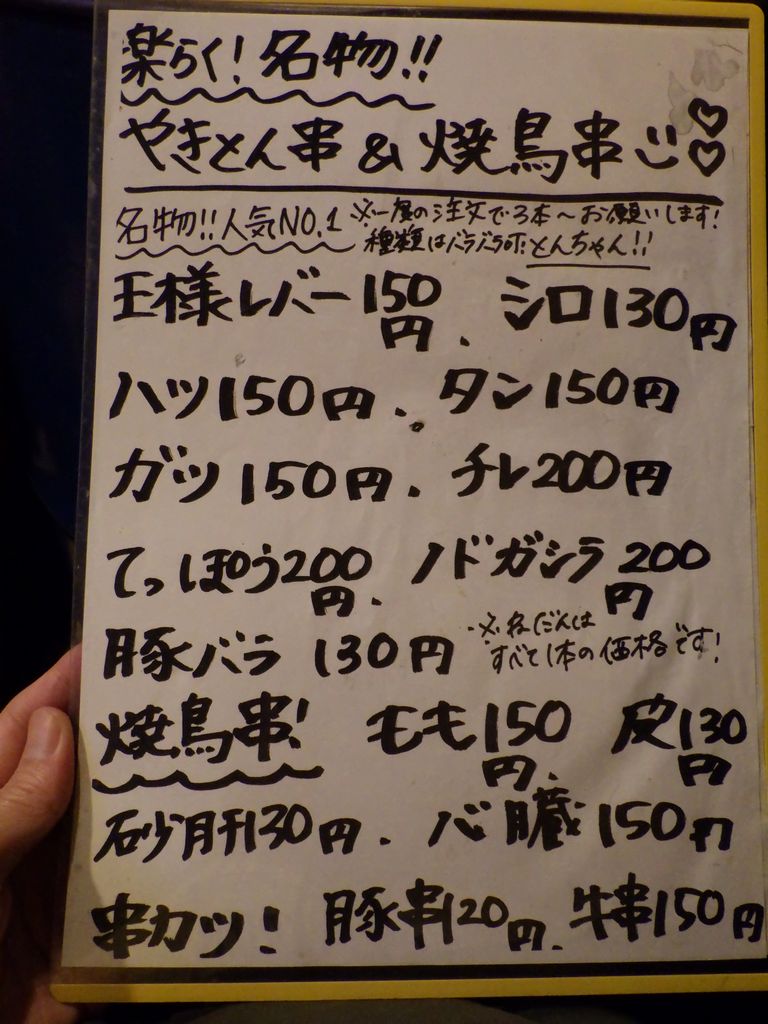 楽らく!名物!!
やきとん串&焼鳥串
名物!!人気NO.1 ※一度の注文で3本～お願いします!
種類はバラバラOK!とんちゃん!!
王様レバー150円、シロ130円
ハツ150円、タン150円
ガツ150円、チレ200円
てっぽう200円、ノドガシラ200円
豚バラ 130円 ※ねだんは
すべて1本の価格です!
焼鳥串! もも150円、皮130円
砂肝130円、心臓150円
串カツ! 豚串120円、牛串150円